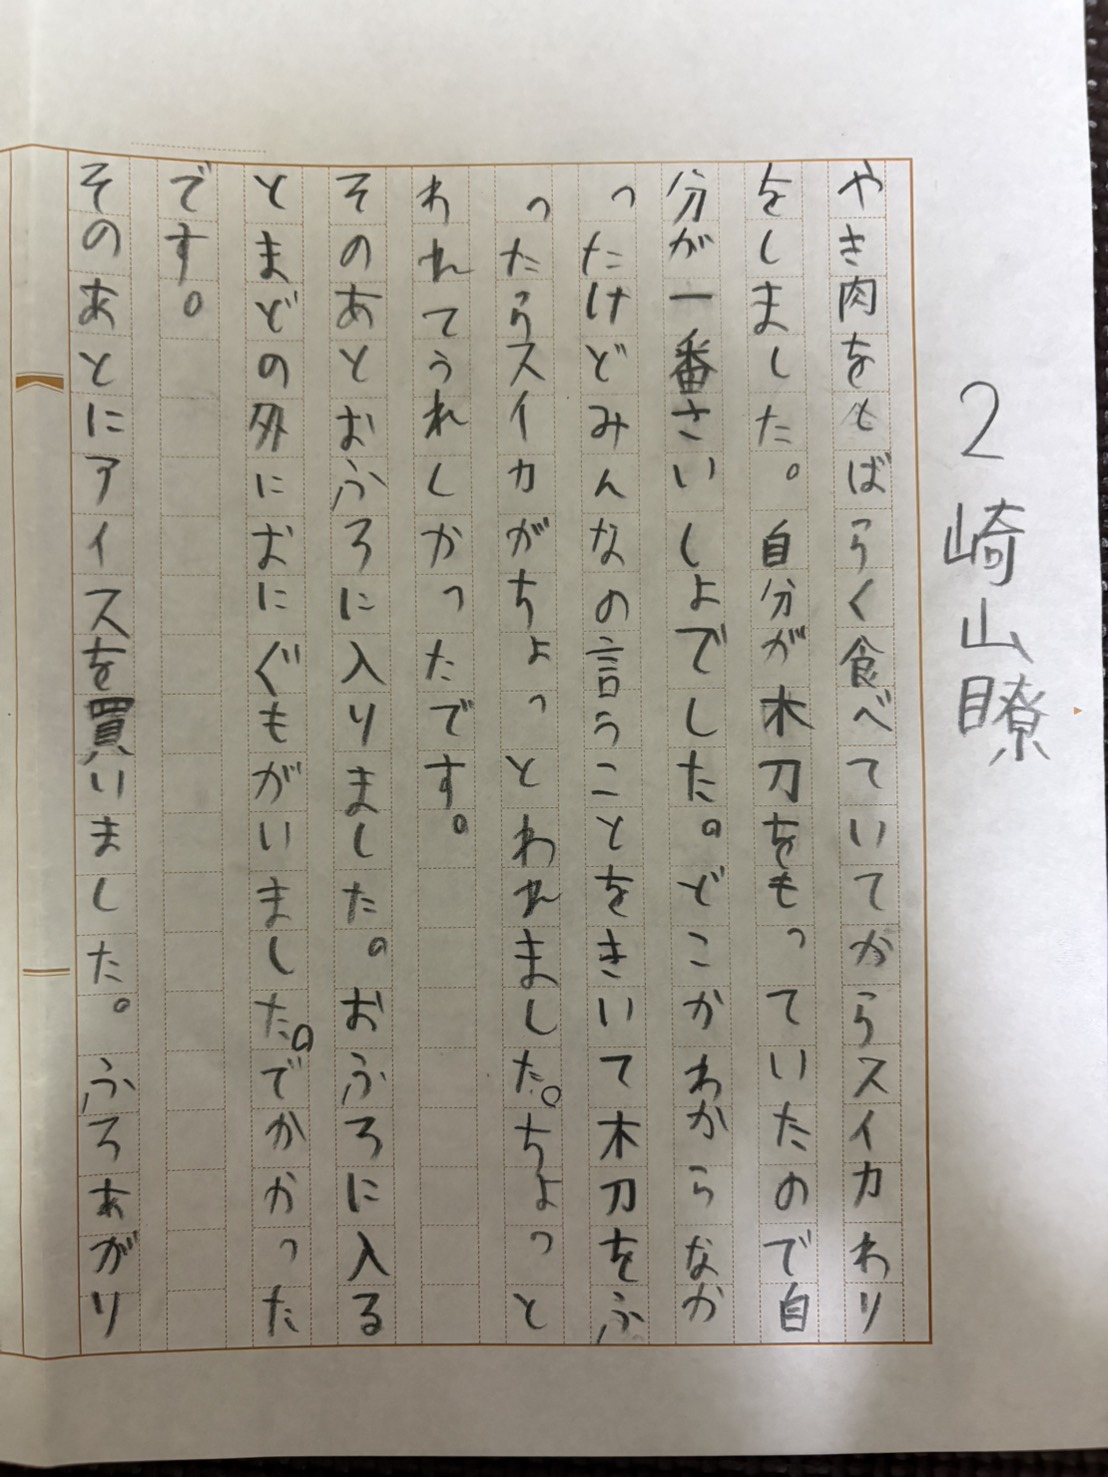 2 崎山瞭
やき肉をもばらく食べていてからスイカわり
をしました。自分が木刀をもっていたので自
分が一番さいしよでした。どこかわからなか
ったけどみんなの言うことをきいて木刀をふ
ったらスイカがちょっとわれました。ちょっと
われてうれしかったです。
そのあとおふろに入りました。おふろに入る
とまどの外におにぐもがいました。でかかった
です。
そのあとにアイスを買いました。ふろあがり